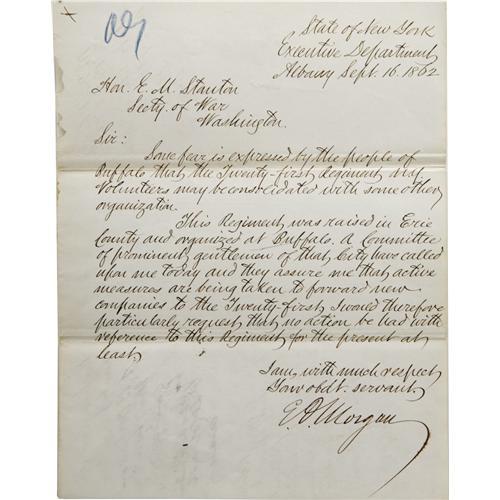 State of New York
Executive Department
Albany Sept. 16. 1862
Hon. E. M. Stanton
Secty. of War
Washington.
Sir:
Some fear is expressed by the people of
Buffalo that the Twenty-first Regiment
Volunteers may be consolidated with some other
organization.
This Regiment was raised in Erie
County and organized at Buffalo. A Committee
of prominent gentlemen of that City have called
upon me today and they assure me that active
measures are being taken to forward new
companies to the Twenty-first. I would therefore
particularly request that no action be had with
reference to this Regiment for the present at
least.
I am, with much respect
Your obdt. servant,
E. D. Morgan